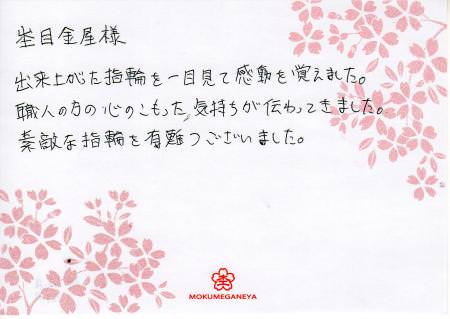 杢目金屋様
出来上がた指輪を一目見て感動を覚えました。
職人の方の心のこもった気持ちが伝わってきました。
素敵な指輪を有難うございました。
MOKUMEGANEYA